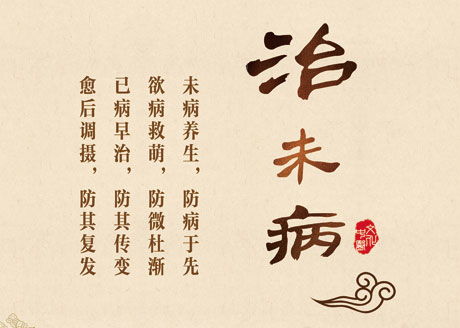 治未病
中医文化
未病养生，防病于先
欲病救萌，防微杜渐
已病早治，防其传变
愈后调摄，防其复发